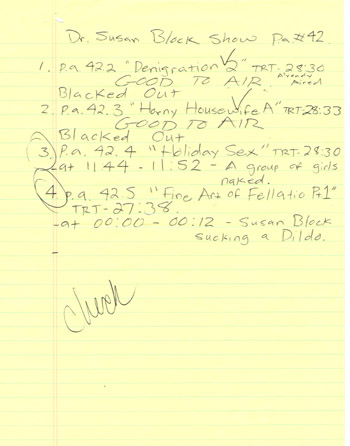 Dr. Susan Block Show p.a #42
1. p.a. 42.2 "Denigration 2" TRT- 28:30
GOOD TO AIR. Already Aired
Blacked Out
2. p.a. 42.3 "Horny Housewife A" TRT-28:33
GOOD TO AIR
Blacked Out
3. p.a. 42.4 "Holiday Sex" TRT-28:30
-at 11:44 - 11:52 - A group of girls
naked.
4. p.a. 42.5 "Fine Art of Fellatio Pt1"
TRT-27:38.
-at 00:00 - 00:12 - Susan Block
sucking a Dildo.
-
check